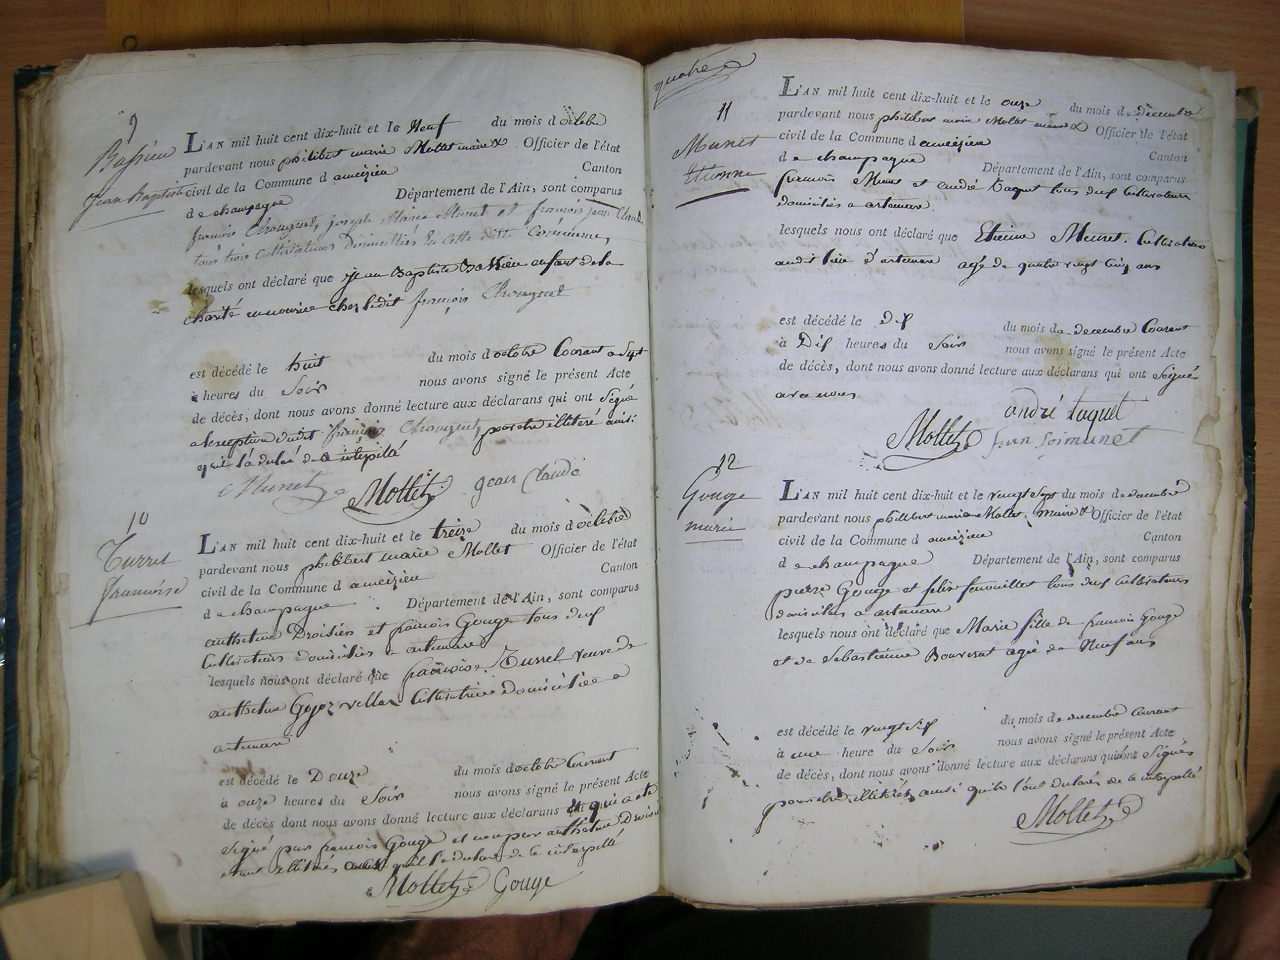 9
Bassieu
Jean Baptiste
L'AN mil huit cent dix-huit et le Neuf du mois d'octobre
pardevant nous philibert marie Mollet maire & Officier de l'état
civil de la Commune d'ameizieu Canton
de champagne Département de l'Ain, sont comparus
françois Chougnet, joseph Marie Munet et françois jean Claude
tous trois Cultivateurs Domiciliés en cette ditte Commune,
lesquels ont déclaré que jean Baptiste Bassieu enfant de la
charité en nourice chez ledit françois
est décédé le huit du mois d'octobre Courant a Sept
heures du Soir nous avons signé le présent Acte
de décès, dont nous avons donné lecture aux déclarans qui ont Signé
a l'exeption dudit françois pour être illitéré ainsi
qu'il l'a déclaré de ce intepellé
Munet Mollet jean Claude
10
Turrel
françoise
L'AN mil huit cent dix-huit et le treize du mois d'octobre
pardevant nous philibert marie Mollet Officier de l'état
civil de la Commune d ameizieu Canton
de champagne Département de l'Ain, sont comparus
anthelme Droisien et francois Gouge tous deux
Cultivateurs domiciliés a artemare
lesquels nous ont déclaré que françoise Turrel veuve de
anthelme Cultivatrice domiciliée a
artemare
est décédé le Douze du mois d'octobre Courant
à onze heures du Soir nous avons signé le présent Acte
de décès dont nous avons donné lecture aux déclarans et qui a été
Signé par francois Gouge et non par anthelme Droisien
étant illitérés ainsi qu'il l'a déclaré de ce interpellé
Mollet Gouge
quatre
11
Munet
Etienne
L'AN mil huit cent dix-huit et le onze du mois de décembre
pardevant nous philibert marie Mollet maire & Officier de l'état
civil de la Commune d'ameizieu Canton
de champagne Département de l'Ain, sont comparus
francois Munet et andré taquet tous deux Cultivateurs
domiciliés a artemare
lesquels nous ont déclaré que Etienne Munet, Cultivateur
audit lieu d'artemare agé de quatre vingt Cinq ans
est décédé le Dix du mois de decembre Courant
à Dix heures du Soir nous avons signé le présent Acte
de décès, dont nous avons donné lecture aux déclarans qui ont Signé
avec nous
andré taquet
Mollet fran soimunet
12
Gouge
marie
L'AN mil huit cent dix-huit et le vingt Sept du mois de decembre
pardevant nous philibert marie Mollet, maire & Officier de l'état
civil de la Commune d ameizieu Canton
de champagne Département de l'Ain, sont comparus
pierre Gouge et felix fouillet tous deux Cultivateurs
domiciliés a artemare
lesquels nous ont déclaré que Marie fille de francois Gouge
et de Sebastienne Bouverat agée de Neuf ans
est décédé le vingt Six du mois de decembre courant
à une heure du Soir nous avons signé le présent Acte
de décès, dont nous avons donné lecture aux déclarans qui n'ont Signés
pour être illitérés, ainsi qu'ils l'ont déclarés de ce interpellé
Mollet